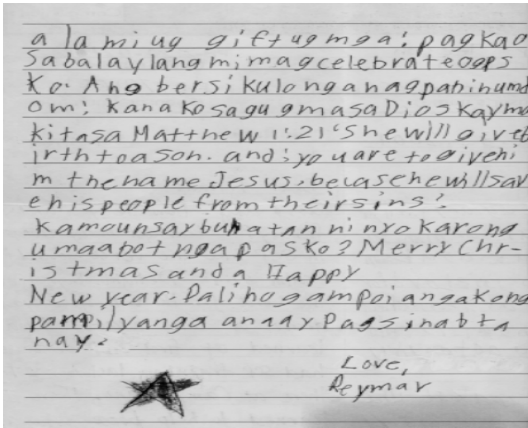 a lami ug gift ug mga: pagkao
sa balay lang mi mag celebrate oops
ko. Ang bersikulo nga nagpahinumd
om: kanako sa gugma sa Dios kay ma
kita sa Matthew 1:21 'She will give b
irth to a son. and: you are to give hi
m the name Jesus, becase he will sav
e his people from their sins!
kamo unsay buhaton ninyo karong
umaabot nga pasko? Merry Chr-
istmas and a Happy
New year. Palihog ampoi ang akong
pamilya nga anaay pagsinabta
nay.
Love,
Reymar